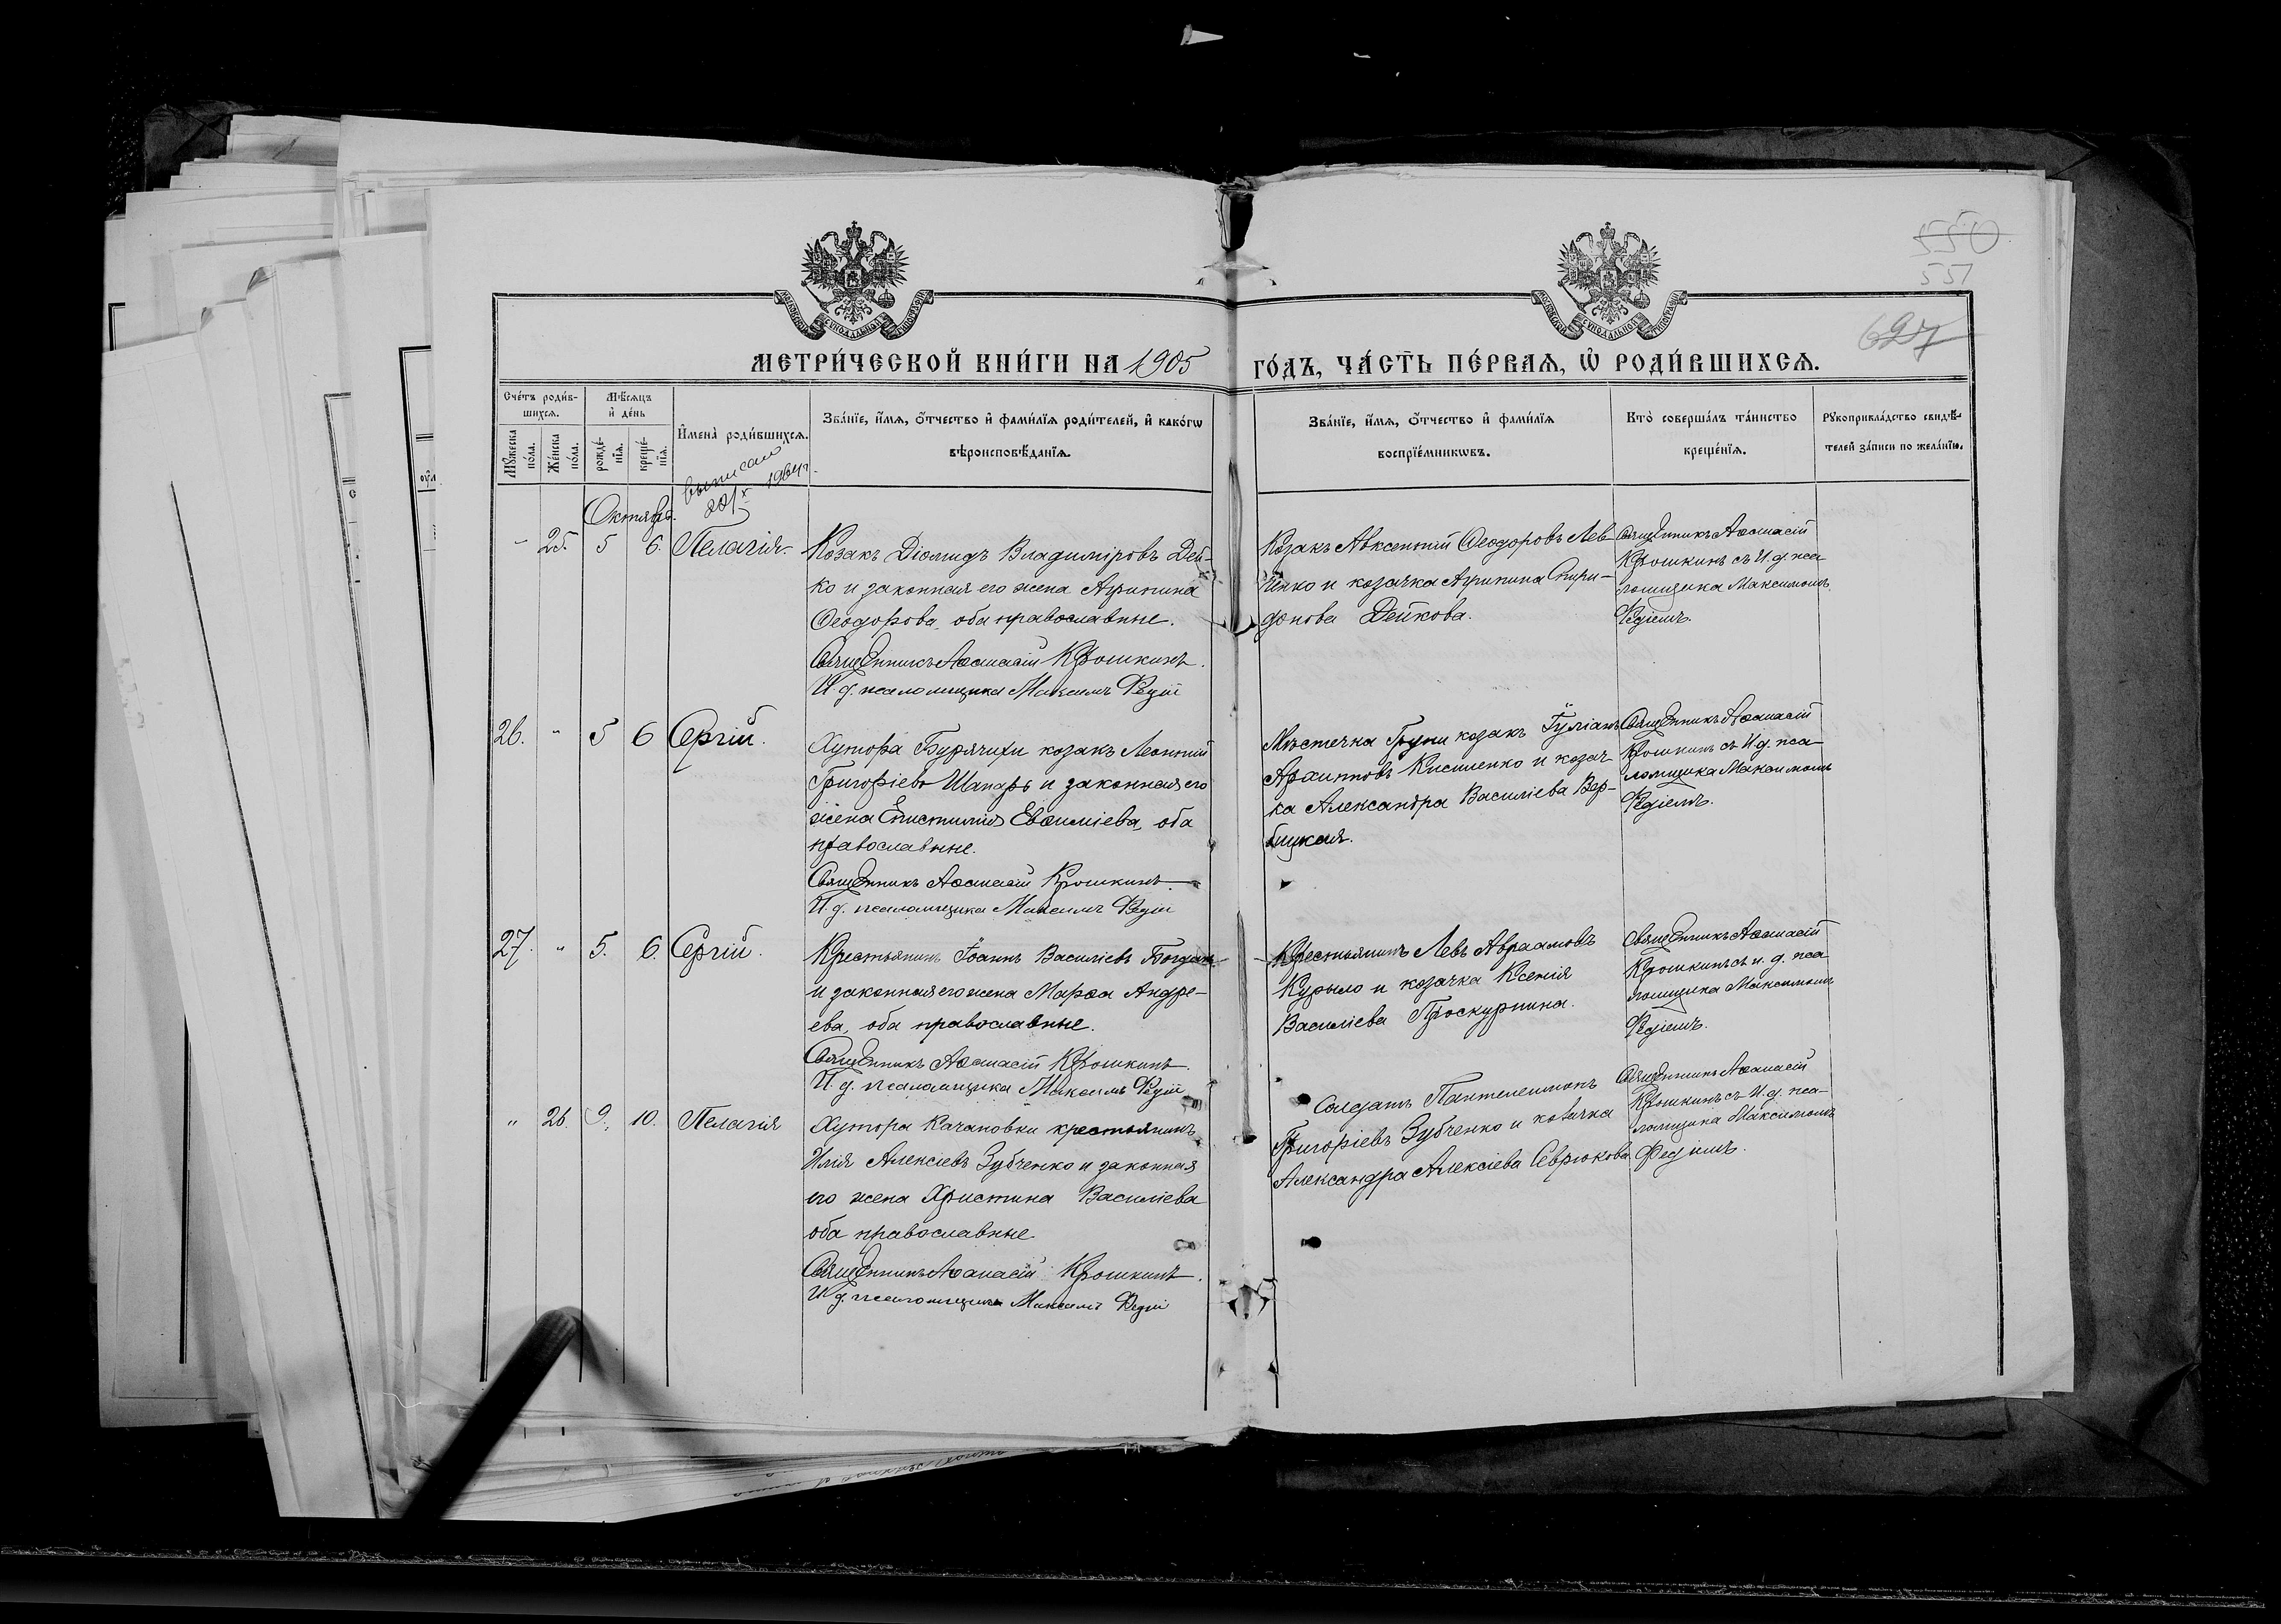 550
551
627
МОСКОВСКОЙ СѴНОДАЛЬНОЙ ТИПОГРАФІИ
МОСКОВСКОЙ СѴНОДАЛЬНОЙ ТИПОГРАФІИ
МЕТРИ́ЧЕСКОЙ КНИ́ГИ НА 1905 ГО́ДЪ, ЧА́СТЬ ПЕ́РВАѦ, Ѡ҆ РОДИ́ВШИХСѦ.
Сче́тъ роди́в-
шихсѧ.
Мꙋ́жеска по́ла.
Же́нска по́ла.
Мѣ́сѧцъ
и҆ де́нь
рожде́-
нїѧ.
креще́-
нїѧ.
И҆мена̀ роди́вшихсѧ.
Зва́нїе, и҆́мѧ, ѻ҆́тчество и҆ фами́лїѧ роди́телей, и҆ како́гѡ
вѣроисповѣ́данїѧ.
Зва́нїе, и҆́мѧ, ѻ҆́тчество и҆ фами́лїѧ
воспрїе́мникѡвъ.
Кто̀ соверша́лъ та́инство
креще́нїѧ.
Рꙋкоприкла́дство свидѣ́-
телей за́писи по жела́нїю.
1964 г.
Октябрь.
- 25. 5 6. Пелагія.
Козакъ Діомидъ Владиміровъ Дей-
ко и законная его жена Агрипина
Ѳеодорова, оба православные.
Священникъ Аѳанасій Крошкинъ.
И. д. псаломщика Максимъ Редій
Козакъ Авксентій Ѳеодоровъ Лев-
ченко и козачка Агрипина Спири-
донова Дейкова.
Священникъ Аѳанасій
Крошкинъ съ И. д. пса-
ломщика Максимомъ
Редіемъ.
26. " 5 6 Сергій.
Хутора Бурячихи козакъ Леонтій
Григоріевъ Шапаръ и законная его
жена Епистимія Евѳиміева, оба
православные.
Священникъ Аѳанасій Крошкинъ.
И. д. псаломщика Максимъ Редій
Мѣстечка Груни козакъ Іуліанъ
Архиповъ Кисиленко и козач-
ка Александра Василіева Вер-
бицкая.
Священникъ Аѳанасій
Крошкинъ съ И. д. пса-
ломщика Максимомъ
Редіемъ.
27. " 5. 6. Сергій.
Крестьянинъ Іоаннъ Василіевъ
и законная его жена Марѳа Андре-
ева, оба православные.
Священникъ Аѳанасій Крошкинъ.
И. д. псаломщика Максимъ Редій
Крестьянинъ Левъ Авраамовъ
Курыло и козачка Ксенія
Василіева Проскурнина.
Священникъ Аѳанасій
Крошкинъ съ и. д. пса-
ломщика Максимомъ
Редіемъ.
" 26. 9. 10. Пелагія
Хутора Качановки крестьянинъ
Илія Алексіевъ Зубченко и законная
его жена Христина Василіева
оба православные.
Священникъ Аѳанасій Крошкинъ.
И. д. псаломщика Максимъ Редій
Солдатъ Пантелеимонъ
Григоріевъ Зубченко и козачка
Александра Алексіева Севрюкова
Священникъ Аѳанасій
Крошкинъ съ И. д. пса-
ломщика Максимомъ
Редіемъ.